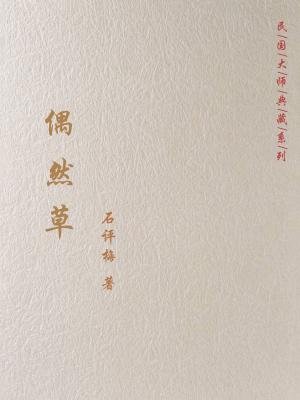 民国大师典藏系列
偶然草
石评梅 著